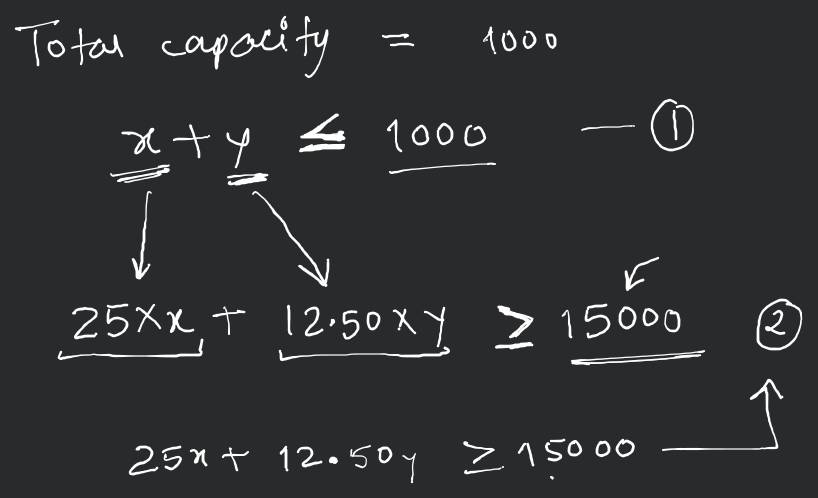 Total capacity = 1000
x + y ≤ 1000 — ①
25×x + 12.50×y ≥ 15000 ②
25x + 12.50y ≥ 15000